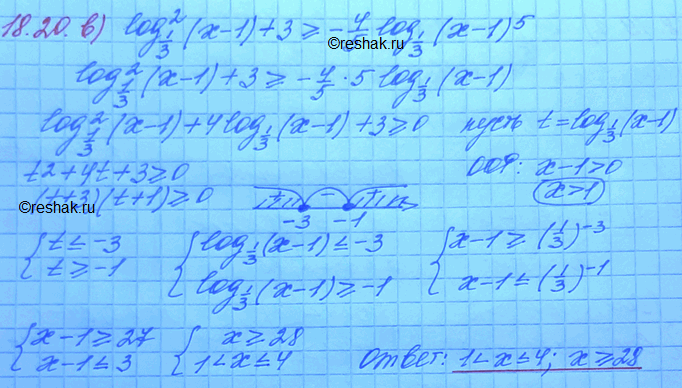 18.20. в) log²_{1/3}(x-1)+3 ≥ -4/5 log_{1/3}(x-1)^5
©reshak.ru
log²_{1/3}(x-1)+3 ≥ -4/5 · 5 log_{1/3}(x-1)
log²_{1/3}(x-1)+4log_{1/3}(x-1)+3≥0 пусть t=log_{1/3}(x-1)
t2+4t+3≥0 ООФ: x-1>0
(t+3)(t+1)≥0 + - + x>1
©reshak.ru
-3 -1
{ t≤-3 { log_{1/3}(x-1)≤-3 { x-1≥(1/3)^{-3}
t≥-1 log_{1/3}(x-1)≥-1 x-1≤(1/3)^{-1}
©reshak.ru
{ x-1≥27 { x≥28
x-1≤3 1<x≤4 ответ: 1<x≤4; x≥28